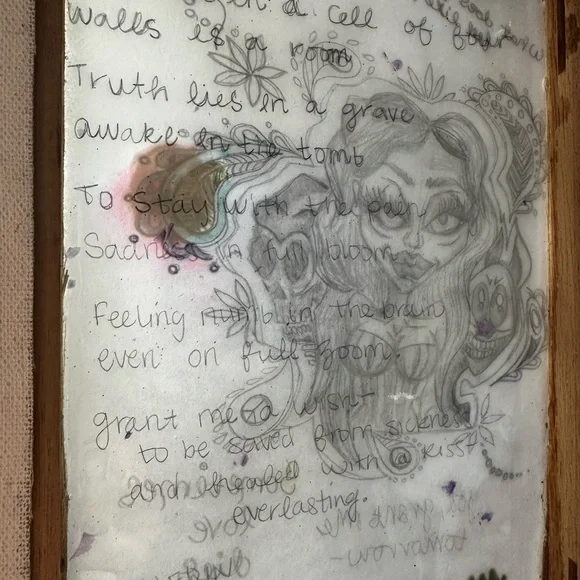 in a cell of four
walls is a room
Truth lies in a grave
awake in the tomb
To stay with the pain
Sadness in full bloom
Feeling numb in the brain
even on full zoom.
grant me a wish
to be saved from sickness
and healed with a kiss
everlasting.
love
tomorrow